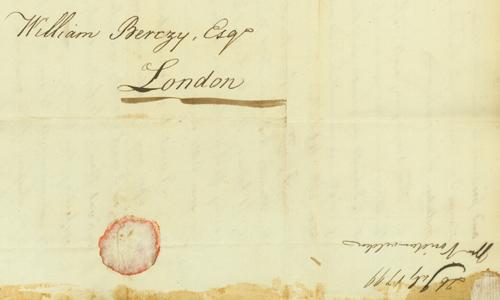 William Berczy, Esqr
London
Mr Vondenvelden
26 July 1799